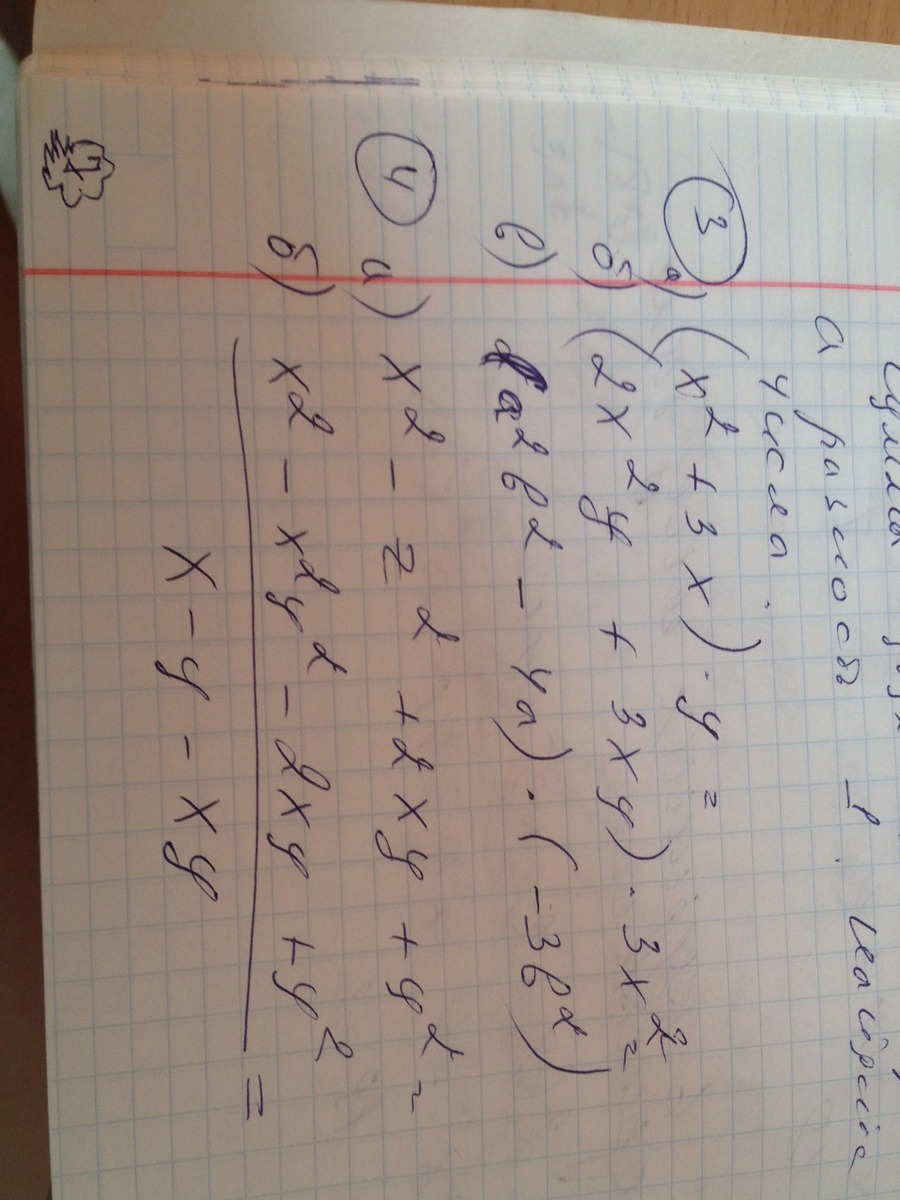 а разность
числа
③ а) (x² + 3x) · y =
б) (2x²y + 3xy) · 3x² =
в) a²b² - 4a) · (-3b²)
④ а) x² - z² + 2xy + y² =
б) x² - x²y² - 2xy + y² =
x - y - xy